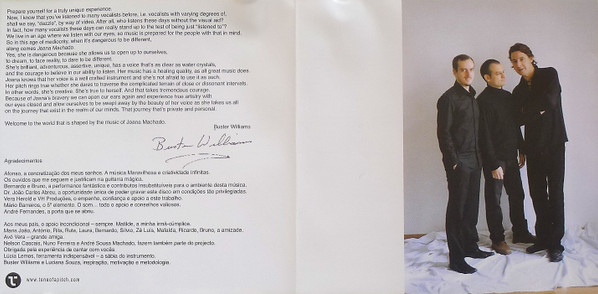 Prepare yourself for a truly unique experience.
Now, I know that you've listened to many vocalists before, i.e. vocalists with varying degrees of,
shall we say, "dazzle", by way of video. After all, who listens these days without the visual aid?
In fact, how many vocalists these days can really stand up to the test of being just "listened to"?
We live in an age where we listen with our eyes, so music is prepared for the people with that in mind.
So in this age of mediocrity, when it's dangerous to be different,
along comes Joana Machado.
Yes, she is dangerous because she allows us to open up to ourselves,
to dream, to face reality, to dare to be different.
She's brilliant, adventurous, assertive, unique, has a voice that's as clear as water crystals,
and the courage to believe in our ability to listen. Her music has a healing quality, as all great music does.
Joana knows that her voice is a well crafted instrument and she's not afraid to use it as such.
Her pitch rings true whether she dares to traverse the complicated terrain of close or dissonant intervals.
In other words, she's creative. She's true to herself. And that takes tremendous courage.
Because of Joana's bravery we can open our ears again and experience true artistry with
our eyes closed and allow ourselves to be swept away by the beauty of her voice as she takes us all
on the journey that exist in the realm of our minds. That journey that's private and personal.
Welcome to the world that is shaped by the music of Joana Machado.
Buster Williams
Buster Williams
Agradecimentos
Afonso, a concretização dos meus sonhos. A música Maravilhosa e criatividade infinitas.
Os ouvidos que me seguem e justificam na guitarra mágica.
Bernardo e Bruno, a performance fantástica e contributos insubstituíveis para o ambiente desta música.
Dr. João Carlos Abreu, a oportunidade única de poder gravar este disco em condições tão privilegiadas.
Vera Herold e VH Produções, o empenho, confiança e apoio a este trabalho.
Mário Barreiros, o 5º elemento. O som... todo o apoio e conselhos valiosos.
André Fernandes, a porta que se abriu.
Aos meus pais, o apoio incondicional – sempre. Matilde, a minha irmã-cúmplice.
Maria João, António, Rita, Rute, Laura, Bernardo, Sílvio, Zé Luís, Mafalda, Ricardo, Bruno, a amizade.
Avó Vera – grande amiga.
Nelson Cascais, Nuno Ferreira e André Sousa Machado, fazem também parte do projecto.
Obrigada pela experiência de cantar com vocês.
Lúcia Lemos, ferramenta indispensável – a sábia do instrumento.
Buster Williams e Luciana Souza, inspiração, motivação e metodologia.
www.toneofapitch.com